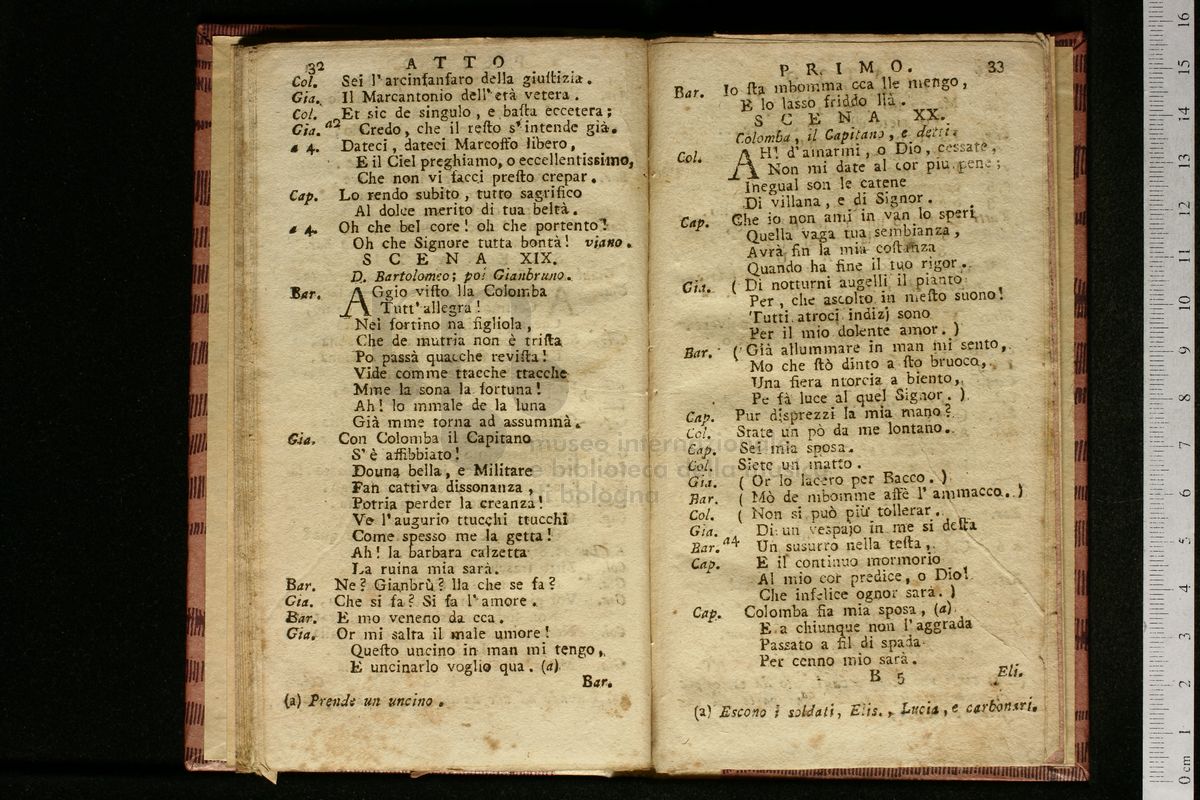 32 ATTO
Col. Sei l'arcinfanfaro della giuſtizia.
Gia. Il Marcantonio dell'età vetera.
Col. Et sic de singulo, e baſta eccetera;
Gia. a2 Credo, che il reſto s'intende già.
a 4. Dateci, dateci Marcoffo libero,
E il Ciel preghiamo, o eccellentissimo,
Che non vi facci preſto crepar.
Cap. Lo rendo subito, tutto sagrifico
Al dolce merito di tua beltà.
a 4. Oh che bel core! oh che portento!
Oh che Signore tutta bontà! viano.
SCENA XIX.
D. Bartolomeo; poi Gianbruno.
Bar. AGgio viſto lla Colomba
Tutt'allegra!
Nei fortino na figliola,
Che de mutria non è triſta
Po passà quacche reviſta!
Vide comme ttacche ttacche
Mme la sona la fortuna!
Ah! lo mmale de la luna
Già mme torna ad assummà.
Gia. Con Colomba il Capitano
S'è affibbiato!
Douna bella, e Militare
Fan cattiva dissonanza,
Potria perder la creanza!
Ve l'augurio ttucchi ttucchi
Come spesso me la getta!
Ah! la barbara calzetta
La ruina mia sarà.
Bar. Ne? Gianbrù? lla che se fa?
Gia. Che si fa? Si fa l'amore.
Bar. E mo veneno da cca.
Gia. Or mi salta il male umore!
Queſto uncino in man mi tengo,
E uncinarlo voglio qua. (a)
Bar.
(a) Prende un uncino.
PRIMO. 33
Bar. Io ſta mbomma cca lle mengo,
E lo lasso friddo llà.
SCENA XX.
Colomba, il Capitano, e detti.
Col. AH! d'amarmi, o Dio, cessate,
Non mi date al cor piu pene;
Inegual son le catene
Di villana, e di Signor.
Cap. Che io non ami in van lo speri,
Quella vaga tua sembianza,
Avrà fin la mia coſtanza
Quando ha fine il tuo rigor.
Gia. (Di notturni augelli il pianto
Per, che ascolto in meſto suono!
Tutti atroci indizj sono
Per il mio dolente amor.)
Bar. (Già allummare in man mi sento,
Mo che ſtò dinto a ſto bruoco,
Una fiera ntorcia a biento,
Pe fà luce al quel Signor.)
Cap. Pur disprezzi la mia mano?
Col. State un pò da me lontano.
Cap. Sei mia sposa.
Col. Siete un matto.
Gia. (Or lo lacero per Bacco.)
Bar. (Mò de mbomme affè l'ammacco.)
Col. (Non si può più tollerar.
Gia. Di un vespajo in me si deſta
Bar. a4 Un susurro nella teſta,
Cap. E il continuo mormorio
Al mio cor predice, o Dio!
Che infelice ognor sarà.)
Cap. Colomba fia mia sposa, (a)
E a chiunque non l'aggrada
Passato a fil di spada
Per cenno mio sarà.
B 5 Eli.
(a) Escono i soldati, Elis., Lucia, e carbonari.
museo internazionale
e biblioteca della musica
di bologna
0 cm 1 2 3 4 5 6 7 8 9 10 11 12 13 14 15 16